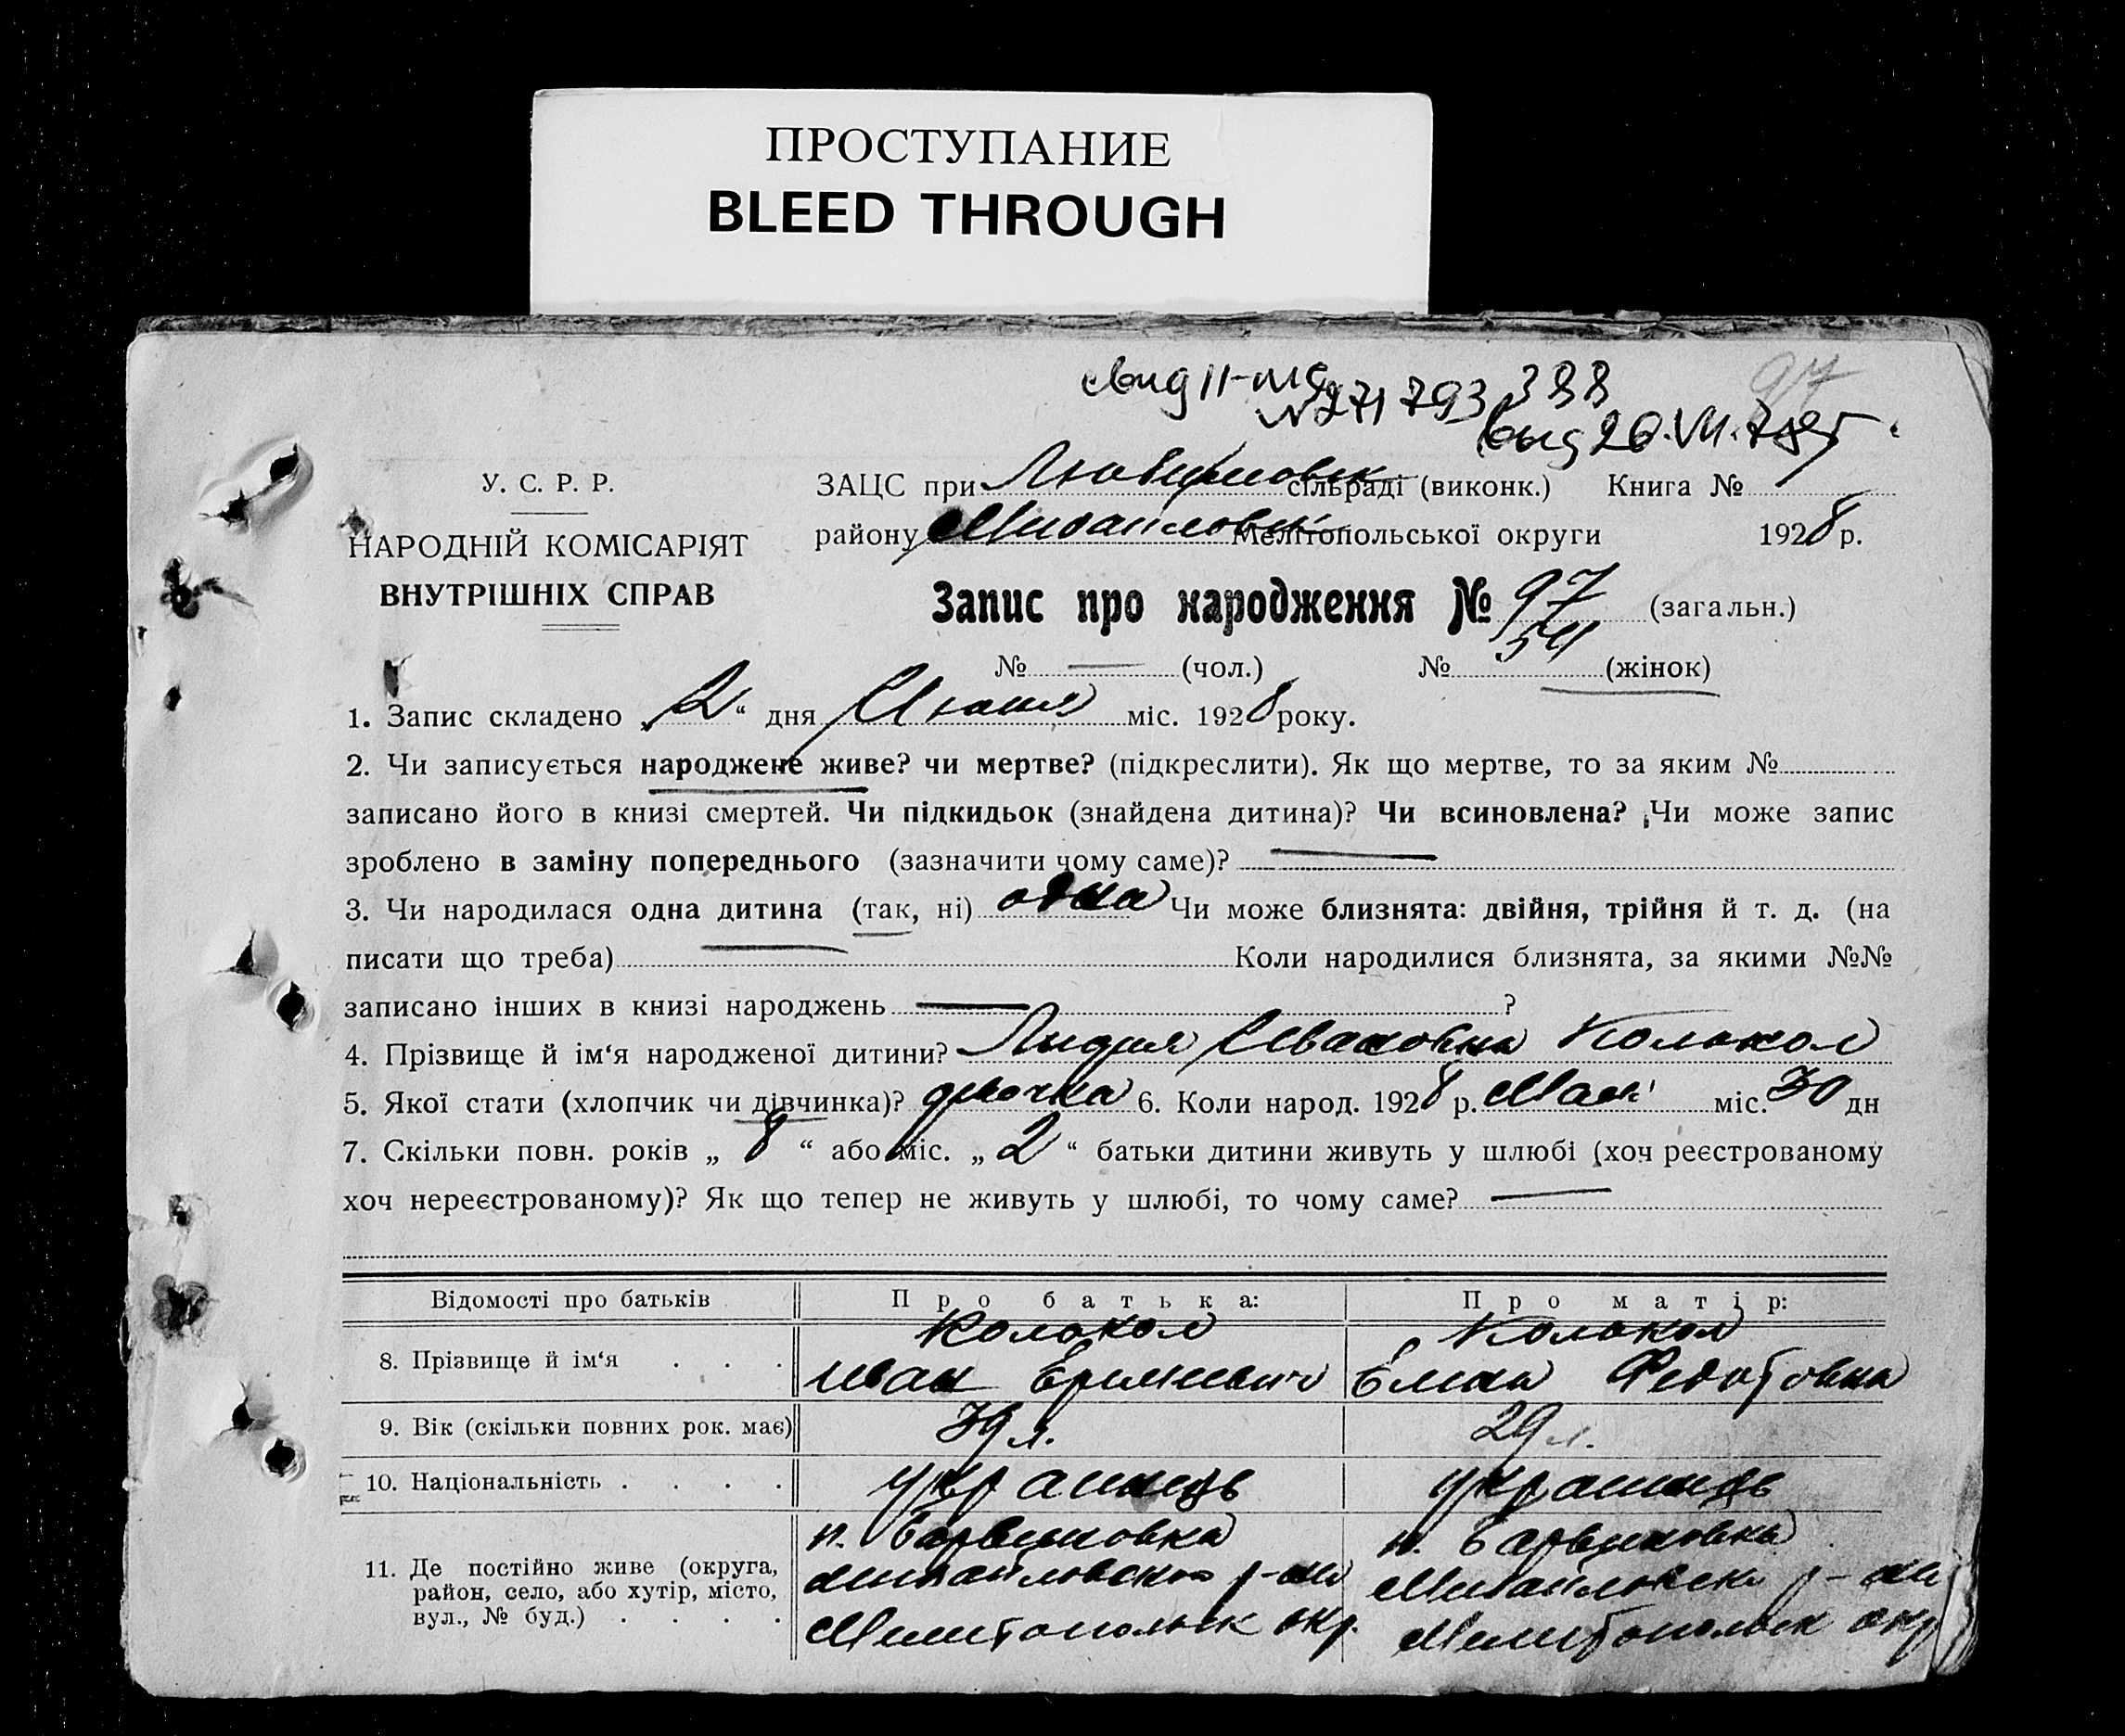 ПРОСТУПАНИЕ
BLEED THROUGH
388
№271793
97
У. С. Р. Р.
НАРОДНІЙ КОМІСАРІЯТ
ВНУТРІШНІХ СПРАВ
ЗАЦС при сільраді (виконк.) Книга №
району Михайловск Мелітопольської округи 1928 р.
Запис про народження № 97 (загальн.)
№ — (чол.) № 54 (жінок)
1. Запис складено „2“ дня Июня міс. 1928 року.
2. Чи записується народжене живе? чи мертве? (підкреслити). Як що мертве, то за яким №
записано його в книзі смертей. Чи підкидьок (знайдена дитина)? Чи всиновлена? Чи може запис
зроблено в заміну попереднього (зазначити чому саме)? —
3. Чи народилася одна дитина (так, ні) одна Чи може близнята: двійня, трійня й т. д. (на
писати що треба) — Коли народилися близнята, за якими №№
записано інших в книзі народжень — ?
4. Прізвище й ім‘я народженої дитини? Лидия Ивановна Колокол
5. Якої стати (хлопчик чи дівчинка)? девочка 6. Коли народ. 1928 р. Мая міс. 30 дн
7. Скільки повн. років „ 8 “ або міс. „ 2 “ батьки дитини живуть у шлюбі (хоч реєстрованому
хоч нереєстрованому)? Як що тепер не живуть у шлюбі, то чому саме? —
Відомості про батьків Про батька: Про матір:
Колокол Колокол
8. Прізвище й ім‘я . . . Иван Ефимович Елена Федотовна
9. Вік (скільки повних рок. має) 39 л. 29 л.
10. Національність . . . . украинець украинець
п. Барвиновка п. Барвиновка
11. Де постійно живе (округа,
район, село, або хутір, місто,
вул., № буд.) . . . .
Михайловского р-на Михайловск р-на
Мелитопольск окр. Мелитопольск окр